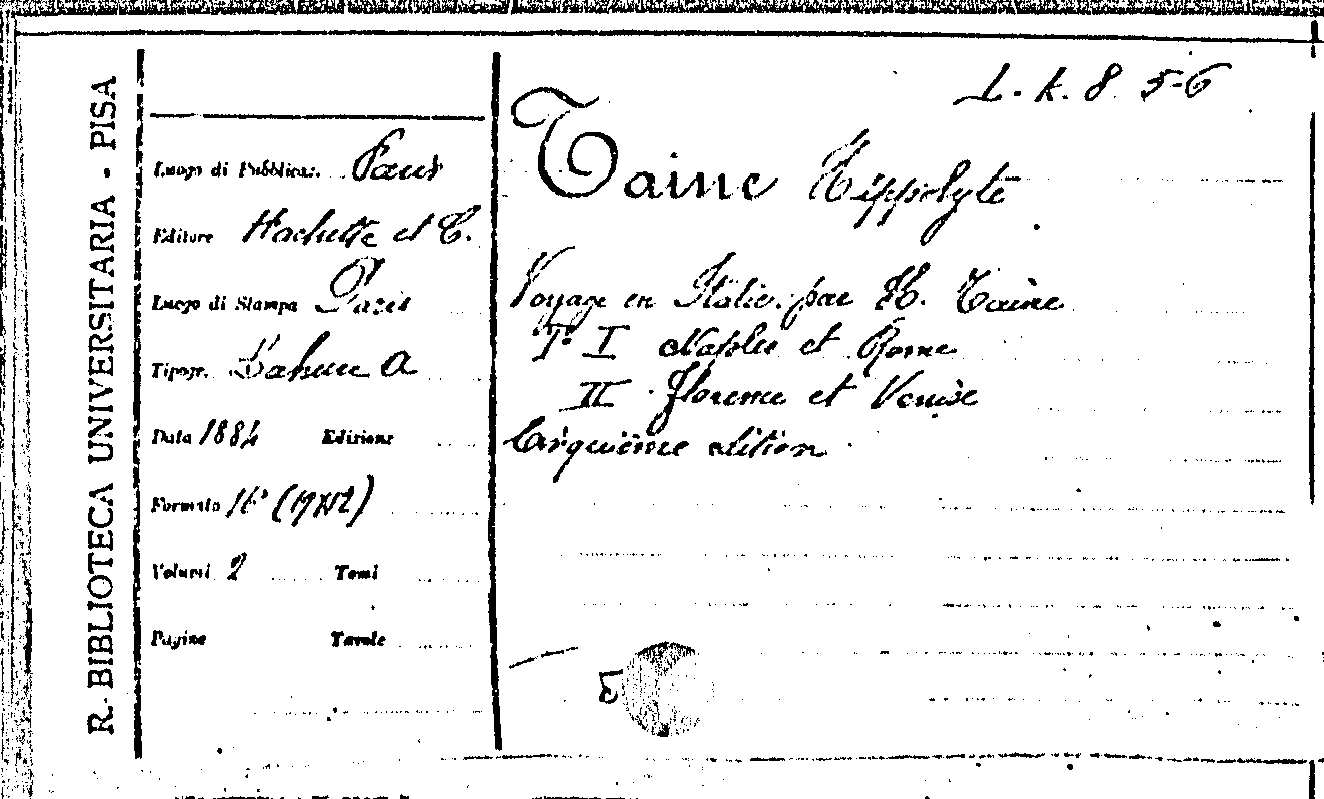 R. BIBLIOTECA UNIVERSITARIA - PISA
L. K. 8. 5-6
Luogo di Pubblicaz. Paris
Editore Hachette et C.
Luogo di Stampa Paris
Tipogr. Lahure A
Data 1884 Edizione
Formato 16° (19X12)
Volumi 2 Tomi
Pagine Tavole
Taine Hippolyte
Voyage en Italie. par H. Taine
T. I Naples et Rome
II Florence et Venise
Cinquième edition